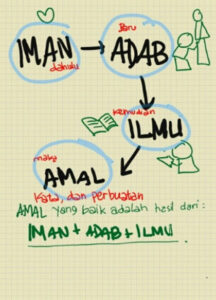 IMAN
dahulu
Baru
ADAB
kemudian
ILMU
maka
AMAL
Kata, dan perbuatan
AMAL yang baik adalah hasil dari:
IMAN + ADAB + ILMU